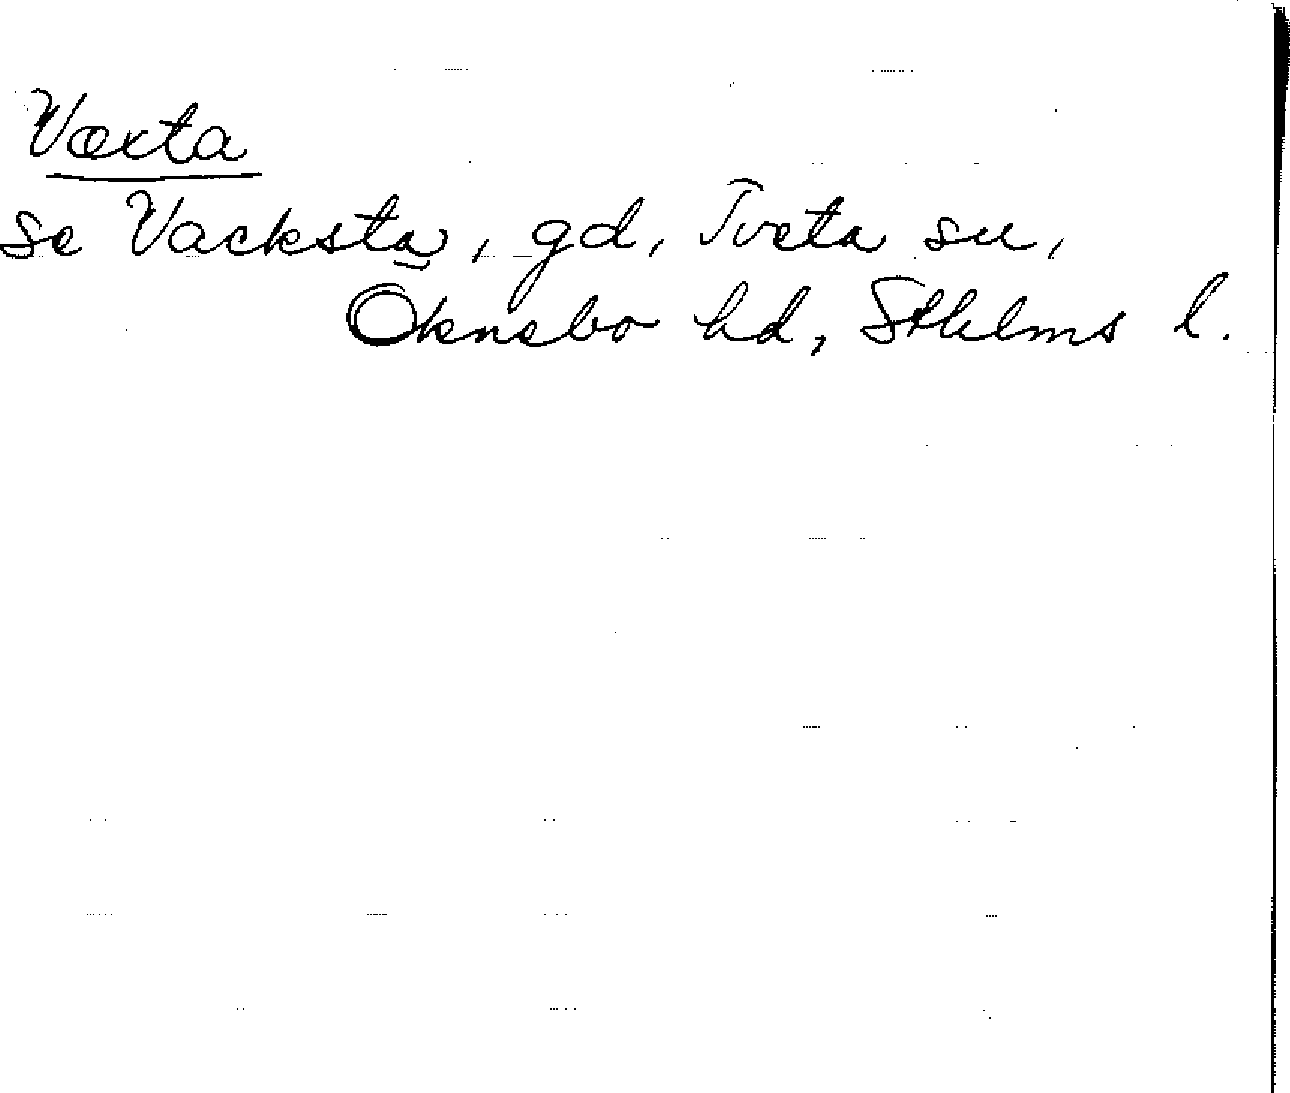 Væxta
se Vacksta, gd, Tveta sn,
Öknebo hd, Sthlms l.